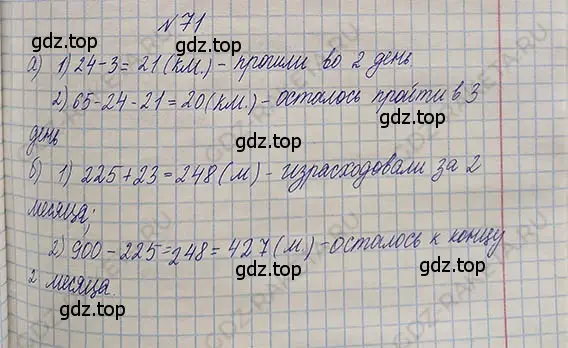 N 71
а) 1) 24-3=21(км.) - прошли во 2 день
2) 65-24-21=20(км.) - осталось пройти в 3
день
б) 1) 225+23=248(м) - израсходовали за 2
месяца;
2) 900-225=248=427(м.) - осталось к концу
2 месяца.
gdz.top
gdz.top
gdz.top
gdz.top
gdz.top
gdz.top
gdz.top
gdz.top
gdz.top
GDZ-RAKETA.RU